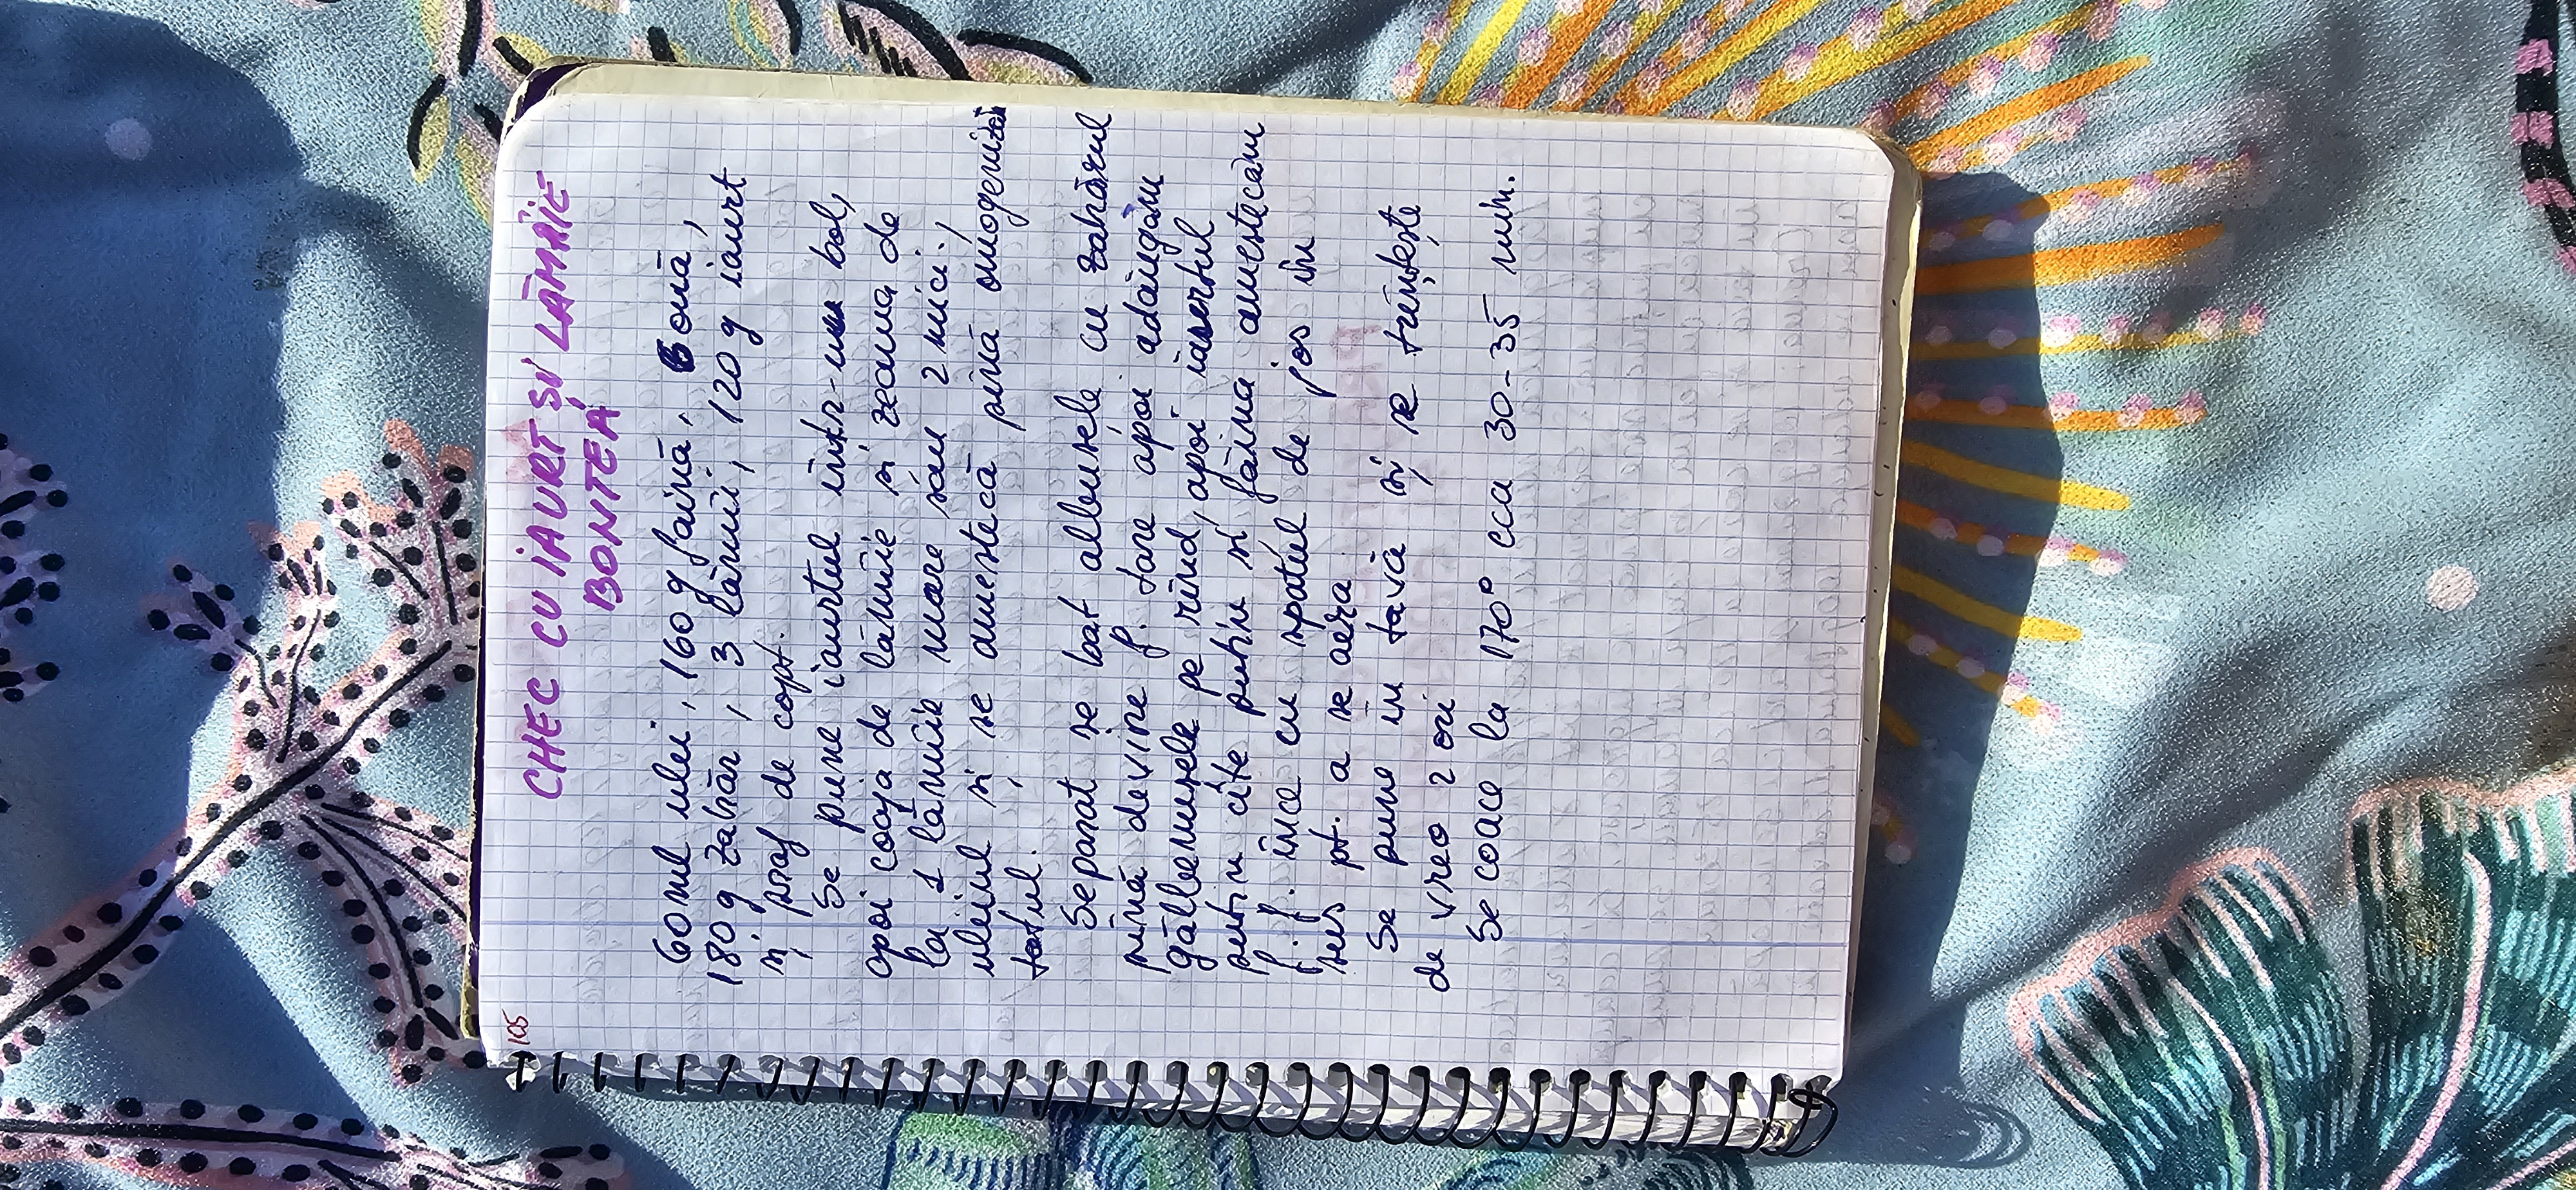 105
CHEC CU IAURT ȘI LĂMÂIE
BONTEA
60 ml ulei, 160 g faină, 6 ouă,
180 g zahăr, 3 lămîi, 120 g iaurt
și praf de copt.
Se pune iaurtul într-un bol,
apoi coaja de lămîie și zeama de
la 1 lămîie mare sau 2 mici.,
uleiul și se amestecă pînă omogenizăm
totul.
Separat se bat albușele cu zahărul
pînă devine f. tare apoi adăugăm
gălbenușele pe rînd, apoi iaurtul
puțin cîte puțin și făina amestecăm
f. f. înce cu spatul de jos în
sus pt. a se aera
Se pune în tavă și se trîntește
de vreo 2 ori
Se coace la 170° cca 30-35 min.